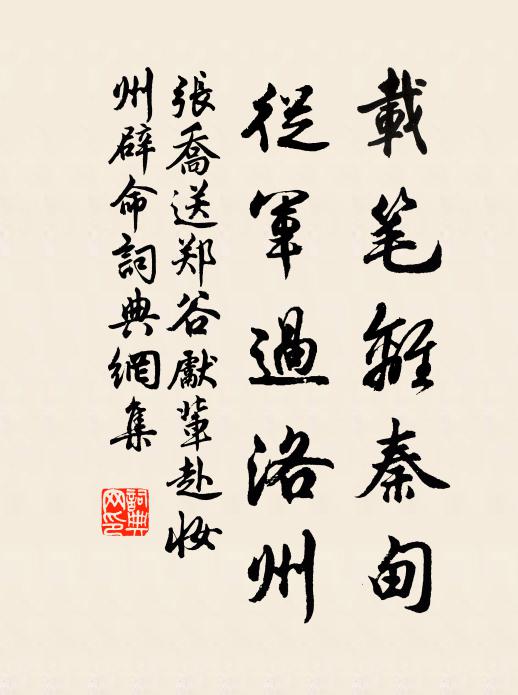 載笔離秦甸
從軍過洛州
張喬送郑谷獻輩赴妆
州辟命詞典網集
詞典
网印